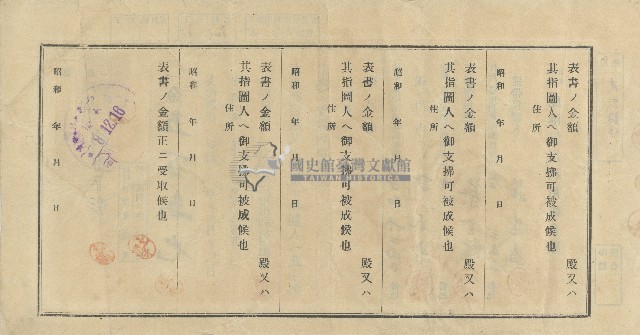 表書ノ金額　　　　　　　殿又ハ
其指圖人ヘ御支拂可被成候也
住所
昭和　年　月　日
表書ノ金額　　　　　　　殿又ハ
其指圖人ヘ御支拂可被成候也
住所
昭和　年　月　日
表書ノ金額　　　　　　　殿又ハ
其指圖人ヘ御支拂可被成候也
住所
昭和　年　月　日
表書ノ金額　　　　　　　殿又ハ
其指圖人ヘ御支拂可被成候也
住所
昭和　年　月　日
表書ノ金額正ニ受取候也
昭和　年　月　日
8.12.16
國史館臺灣文獻館
TAIWAN HISTORICA